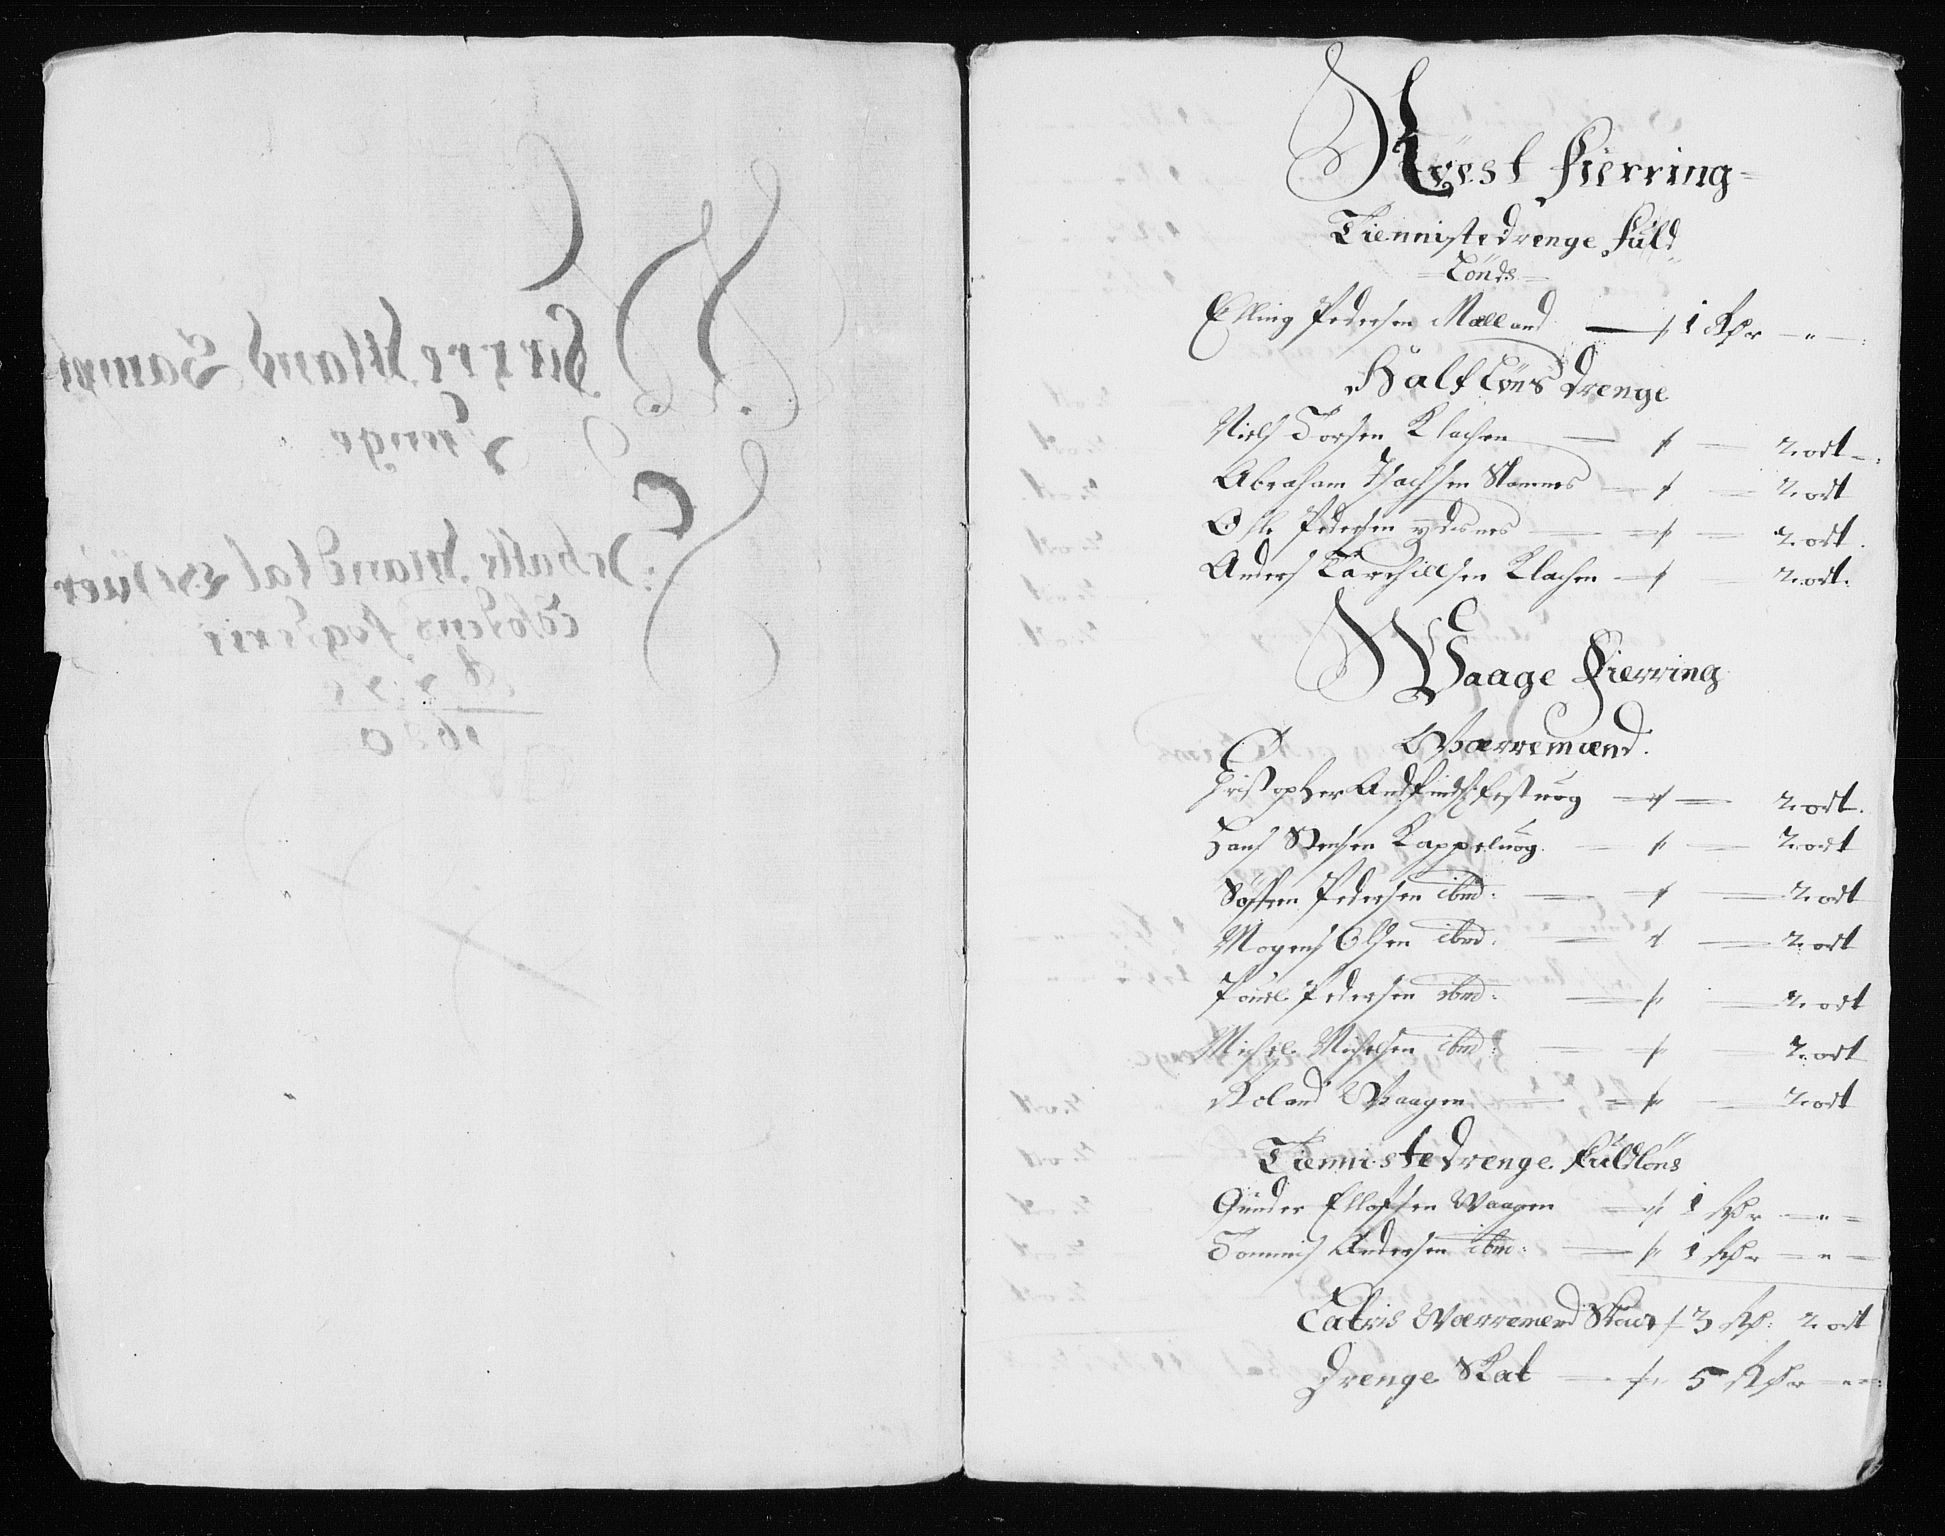 Røest Fierring
Tiennistedrenge Fuld
Lønds
Elling Pedersen Mælland 1 Rdr
Half Løns Drenge
Niels Torsen Klachen 2 ort
Abraham Isachsen Stamnes 2 ort
Ole Pedersen ydesnes 2 ort
Anders Tarchildsen Klachen 2 ort
Waage Fierring
Værremænd
Christopher Andfinds: Festuog 2 ort
Hans Stensen Kappeluog 2 ort
Søffren Pedersen ibmd: 2 ort
Mogens Olsen ibmd: 2 ort
Pouel Pedersen ibmd: 2 ort
Michel Michelsen ibmd: 2 ort
Roland Vaagen 2 ort
Tiennistedrenge Fuldløns
Gunder Ellofsen Waagen 1 Rdr
Tommis Andersen ibmd: 1 Rdr
Lateris Værremænd Skat 3 Rd: 2 ort
Drenge Skat 5 Rdr